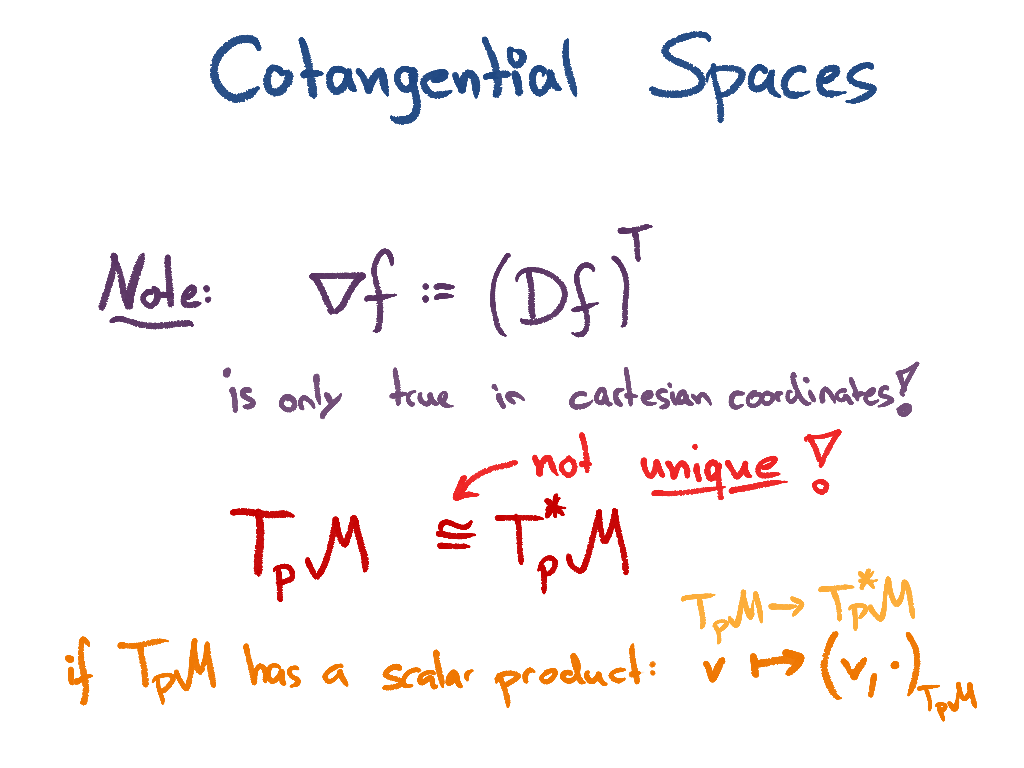 Cotangential Spaces
Note: ∇f := (Df)ᵀ
is only true in cartesian coordinates!
not unique!
TₚM ≅ Tₚ*M
TₚM → Tₚ*M
if TₚM has a scalar product: v ↦ (v, ·)_TₚM